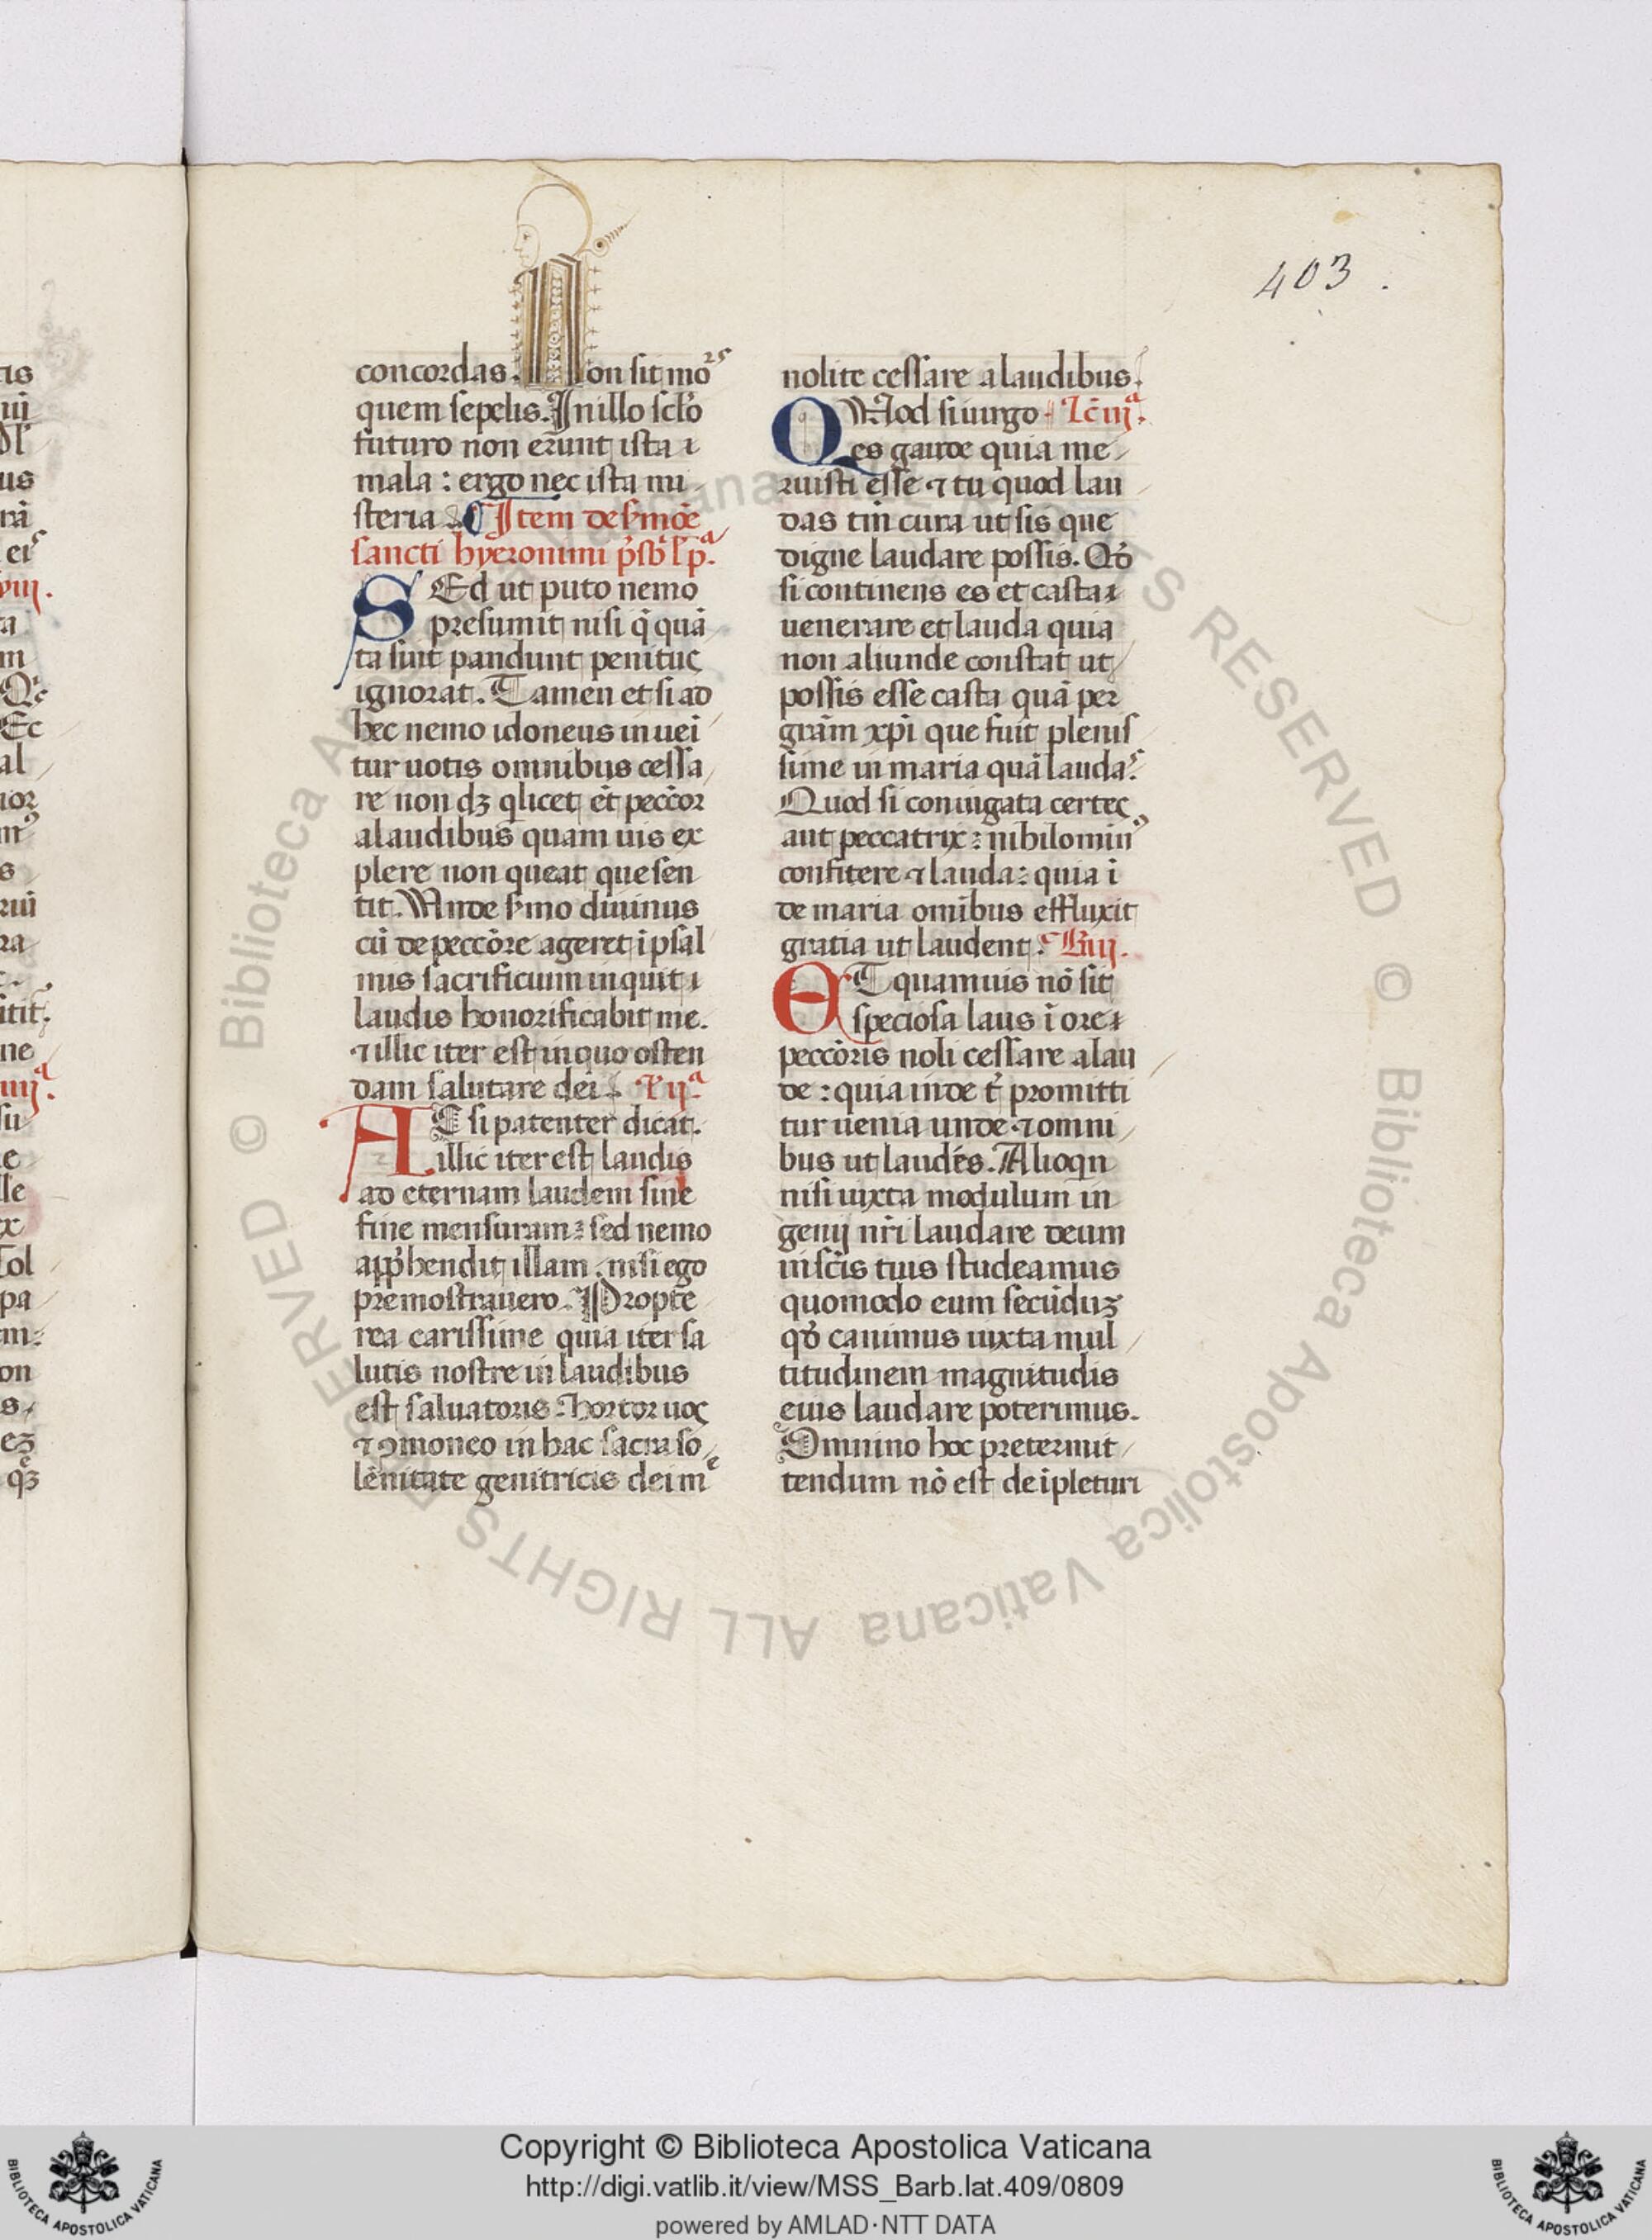 403.
concordas. Non sit moʳˢ
quem sepelis. In illo sc̄lo
futuro non erunt ista
mala : ergo nec ista mi
steria. Item de s̄moe
sancti hyeronimi p̄sb̄
Sed ut puto nemo
presumit nisi q̄ quā
ta sint pandunt penitus
ignorat. Tamen et si ad
hec nemo idoneus inuei
tur uotis omnibus cessa
re non dꝫ q̄ licet et̄ pecc̄or
a laudibus quam uis ex
plere non queat que sen
tit. Unde s̄mo diuinus
cū de pecc̄ore ageret ī psal
mis sacrificium inquit
laudis honorificabit me.
⁊ illic iter est in quo osten
dam salutare dei.
AC si patenter dicat.
illic iter est laudis
ad eternam laudem sine
fine mensuram : sed nemo
app̄hendit illam. nisi ego
premostrauero. Propte
rea carissime quia iter sa
lutis nostre in laudibus
est saluatoris : hortor uos
⁊ ꝯmoneo in hac sacra so
lēnitate genitricis dei mᵉ
nolite cessare a laudibus.
QUod si uirgo
es gaude quia me
ruisti esse ⁊ tu quod lau
das tm̄ cura ut sis que
digne laudare possis. Qō
si continens es et casta
uenerare et lauda quia
non aliunde constat ut
possis esse casta quā per
grām xp̄i que fuit plenis
sime in maria quā laudaˢ.
Quod si coniugata certe
aut peccatrix : nihilomin⁹
confitere ⁊ lauda : quia ī
de maria omībus effluxit
gratia ut laudent.
ET quamuis nō sit
speciosa laus ī ore
pecc̄oris noli cessare a lau
de : quia inde t̄ promitti
tur uenia unde ⁊ omni
bus ut laudēs. Alioqn
nisi iuxta modulum in
genij nr̄i laudare deum
in sc̄is tuis studeamus
quomodo eum secūduꝫ
qō canimus iuxta mul
titudinem magnitudis
eius laudare poterimus.
Omnino hoc pretermit
tendum nō est de īpletur
© Biblioteca Apostolica Vaticana ALL RIGHTS RESERVED
Copyright © Biblioteca Apostolica Vaticana
http://digi.vatlib.it/view/MSS_Barb.lat.409/0809
powered by AMLAD·NTT DATA
BIBLIOTECA APOSTOLICA VATICANA
BIBLIOTECA APOSTOLICA VATICANA